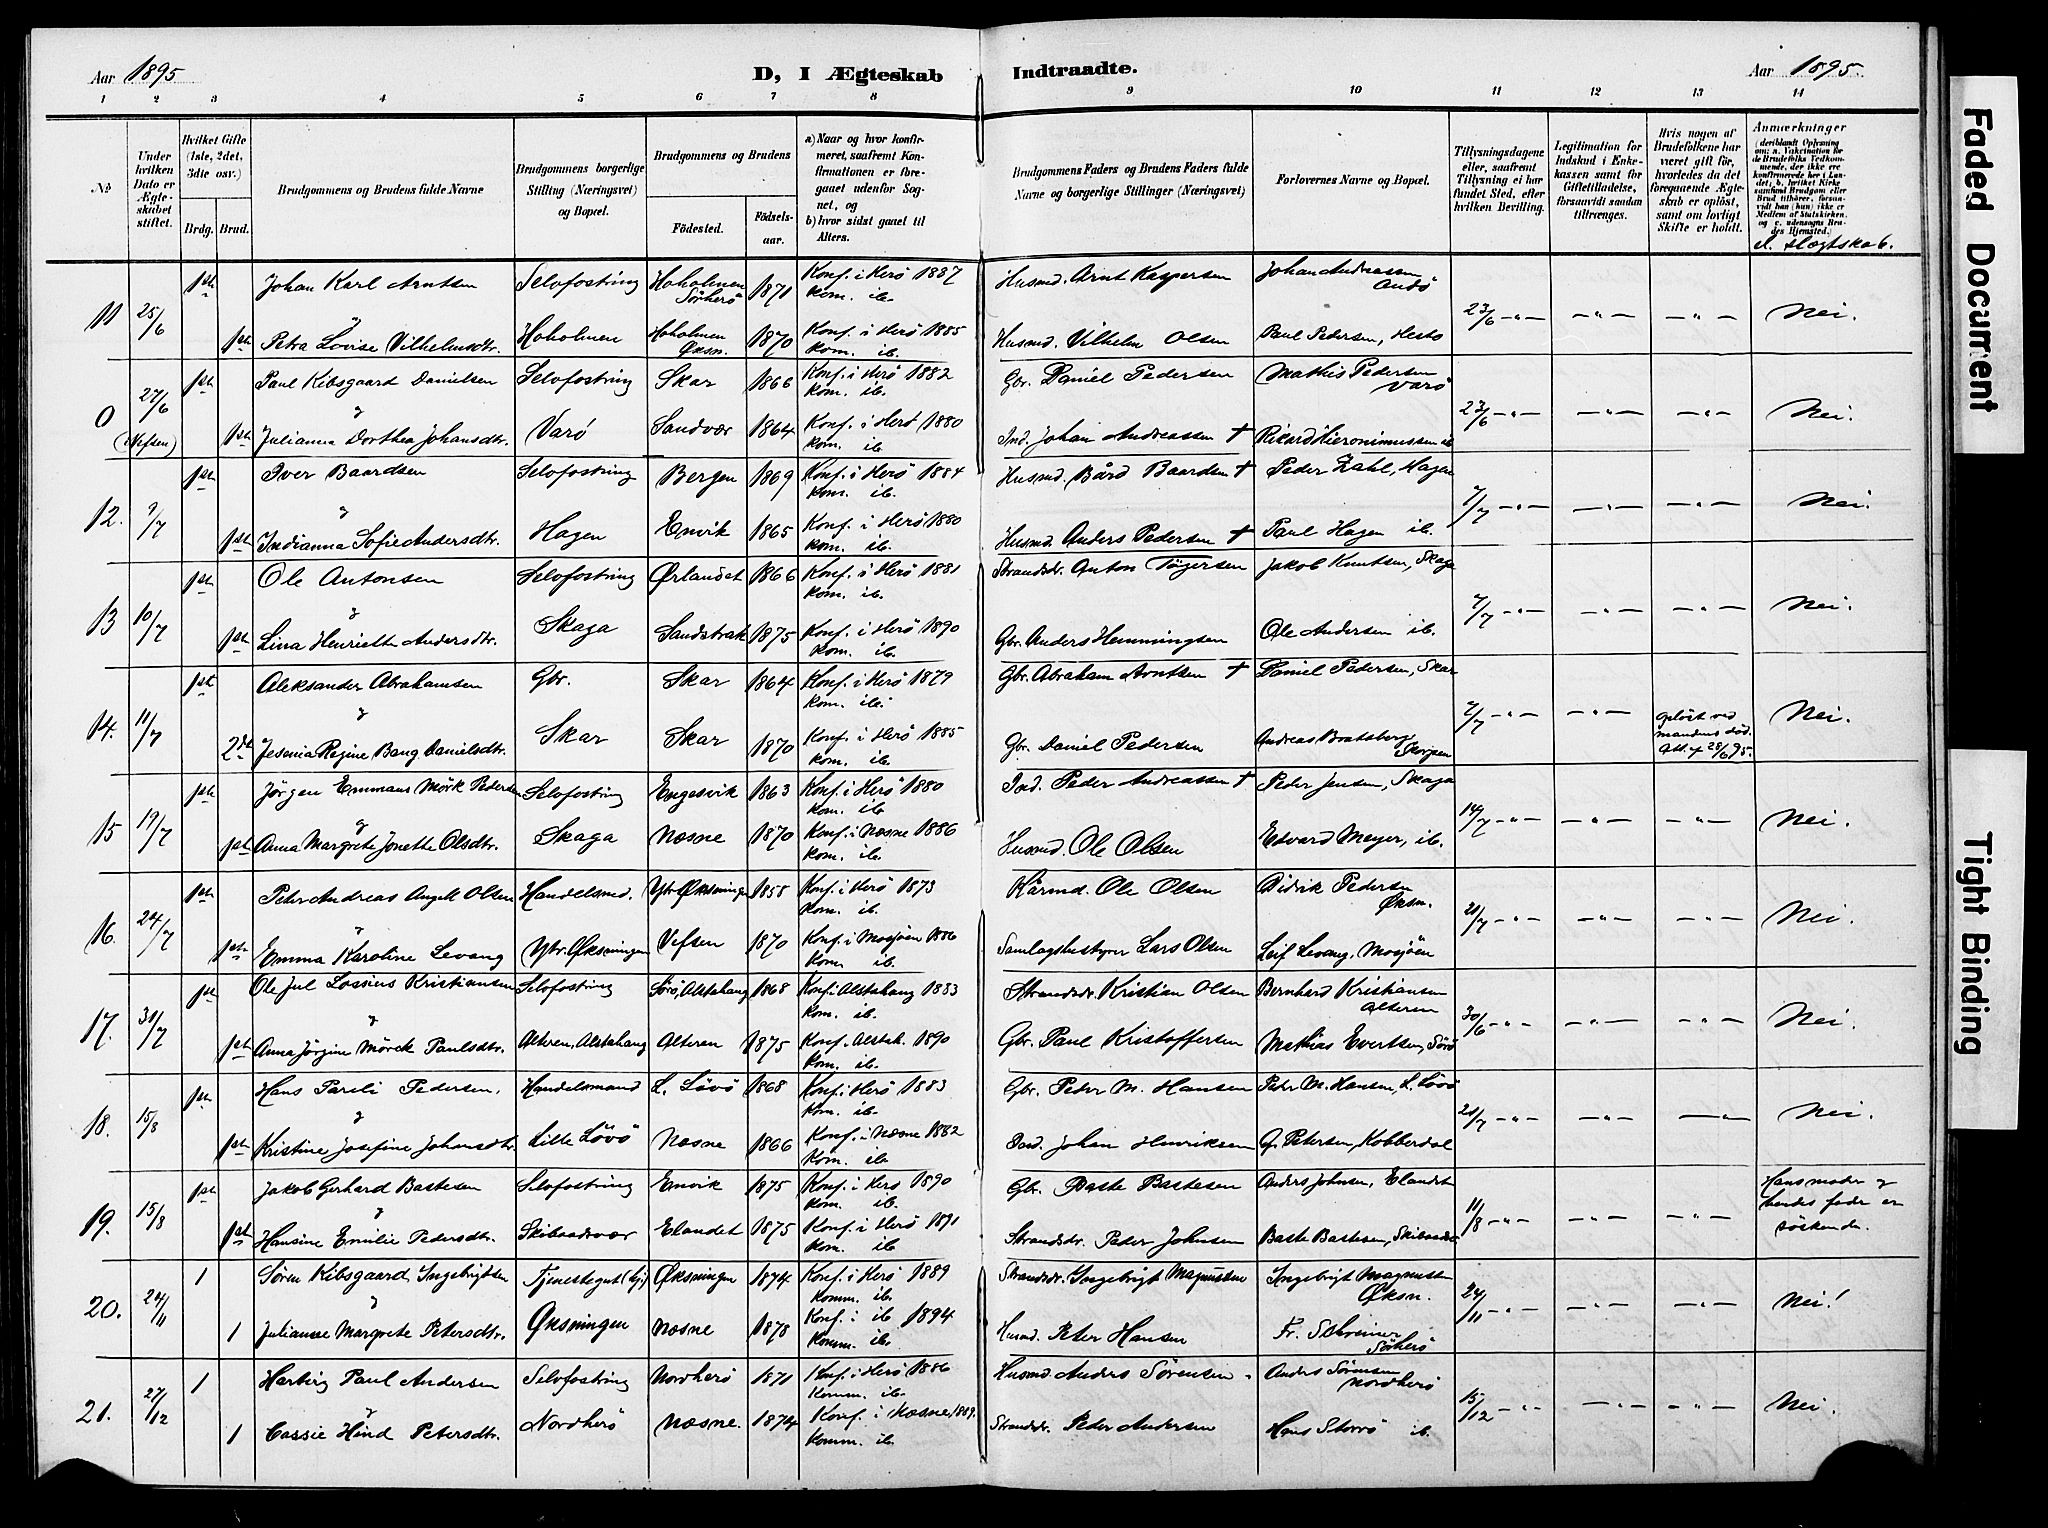 Aar 1895
D, I Ægteskab
Indtraadte.
Aar 1895.
1 2 3 4 5 6 7 8 9 10 11 12 13 14
No
Under hvilken Dato er Ægteskabet stiftet.
Hvilket Gifte (1ste, 2det, 3die osv.)
Brdg. Brud.
Brudgommens og Brudens fulde Navne
Brudgommens borgerlige Stilling (Næringsvei) og Bopæl.
Brudgommens og Brudens
Fødested. Fødselsaar.
a) Naar og hvor konfirmeret, saafremt Konfirmationen er foregaaet udenfor Sognet, og
b) hvor sidst gaaet til Alters.
Brudgommens Faders og Brudens Faders fulde Navne og borgerlige Stillinger (Næringsvei)
Forlovernes Navne og Bopæl.
Tillysningsdagene eller, saafremt Tillysning ei har fundet Sted, efter hvilken Bevilling.
Legitimation for Indskud i Enkekassen samt for Giftetilladelse, forsaavidt saadan tiltrænges.
Hvis nogen af Brudefolkene har været gift før, hvorledes da det foregaaende Ægteskab er opløst, samt om lovligt Skifte er holdt.
Anmærkninger (deriblandt Oplysning om: a. Vakcination for de Brudefolks Vedkommende, der ikke ere konfirmerede her i Landet; b. hvilket Kirkesamfund Brudgom eller Brud tilhører, forsaavidt han (hun) ikke er Medlem af Statskirken, og c. udensogns Brudes Hjemsted.)
d. slægtskab.
11 25/6 1ste Johan Karl Arntsen Selvfostring Hoholmen Sörherö 1871 Konf. i Herö 1887 Kom. ib. Husmd. Arnt Kaspersen Johan Andreassen Andö 23/6 -"- -"- -"- Nei.
&
1ste Petra Lovise Vilhelmsdtr. Hoholmen Hoholmen Øksn. 1870 Konf. i Herö 1885 Kom. ib. Husmd. Vilhelm Olsen Paul Pedersen, Hestö
0 27/6 (Vefsen) 1ste Paul Kibsgaard Danielsen Selvfostring Skar 1866 Konf. i Herö 1882 Kom. ib. Gbr. Daniel Pedersen Mathis Pedersen Varö 23/6 -"- -"- -"- Nei.
&
1ste Julianna Dorthea Johansdtr. Varö Sandvær 1864 Konf. i Herö 1880 Kom. ib. Ind. Johan Andreassen † Rikard Hieronimussen ib
12. 9/7 1ste Iver Baardsen Selvfostring Bergen 1869 Konf. i Herö 1884 Kom. ib. Husmd. Bård Baardsen † Peder Zahl, Hagen 7/7 -"- -"- -"- Nei.
&
1ste Indianna Sofie Andersdtr. Hagen Envik 1865 Konf. i Herö 1880 Kom. ib. Husmd. Anders Pedersen † Paul Hagen ib.
13 10/7 1ste Ole Antonsen Selvfostring Ørlandet 1866 Konf. i Herö 1881 Kom. ib. Strandsdr. Anton Tögersen Jakob Knutsen, Skaga 7/7 -"- -"- -"- Nei.
&
1ste Lina Henriette Andersdtr. Skaga Sandstrak 1875 Konf. i Herö 1890 Kom. ib. Gbr. Anders Hemmingsen Ole Andersen ib.
14. 11/7 1ste Aleksander Abrahamsen Gbr. Skar 1864 Konf. i Herö 1879 Kom. ib. Gbr. Abraham Arntsen † Daniel Pedersen, Skar 7/7 -"- -"- Opløst ved mandens död. Att. af 28/6 95. Nei.
&
2den Jesenia Regine Bang Danielsdtr. Skar Skar 1870 Konf. i Herö 1885 Kom. ib. Gbr. Daniel Pedersen Andreas Braatsberg
15 19/7 1ste Jörgen Emmaus Mörk Pedersen Selvfostring Engesvik 1863 Konf. i Herö 1880 Kom. ib. Ind. Peder Andreassen † Peder Jensen, Skaga 14/7 -"- -"- -"- Nei.
&
1ste Anna Margrete Jonette Olsdtr. Skaga Næsne 1870 Konf. i Næsne 1886 Kom. ib. Husmd. Ole Olsen Edvard Meyer, ib.
16. 24/7 1ste Peter Andreas Angell Olsen Handelsmd. Ytr. Øksningen 1858 Konf. i Herö 1873 Kom. ib. Kårmd. Ole Olsen Didrik Pedersen Øksn. 21/7 -"- -"- -"- Nei.
&
1ste Emma Karoline Levang Ytr. Øksningen Vefsen 1870 Konf. i Mosjöen 1886 Kom. ib. Samlagsbestyrer Lars Olsen Leif Levang, Mosjöen
17. 31/7 1ste Ole Jul Lossius Kristiansen Selvfostring Sörö, Alstahaug 1868 Konf. i Alstahaug 1883 Kom. ib. Strandsdr. Kristian Olsen Bernhard Kristiansen Alteren 30/6 -"- -"- -"- Nei.
&
1ste Anna Jörgine Mörck Paulsdtr. Alteren, Alstahaug Alteren 1875 Konf. Alstah. 1890 Kom. ib. Gbr. Paul Kristoffersen Mathias Evertsen, Sörö
18. 15/8 1ste Hans Parili Pedersen. Handelsmand L. Lövö 1868 Konf. i Herö 1883 Kom. ib. Gbr. Peder M. Hansen Peder M. Hansen, L. Lövö 21/7 -"- -"- -"- Nei.
&
1ste Kristine Josefine Johansdtr. Lille Lövö Næsne 1866 Konf. i Næsne 1882 Kom. ib. Ind. Johan Henriksen Petersen, Kobberdal
19. 15/8 1ste Jakob Gerhard Bastesen Selvfostring Envik 1875 Konf. i Herö 1890 Kom. ib. Gbr. Baste Bastesen Anders Johnsen, Elandet 11/8 -"- -"- -"- Hans moder & hendes fader er söskende.
&
1ste Hansine Emilie Pedersdtr. Skibaadsvær Elandet 1875 Konf. i Herö 1891 Kom. ib. Strandsdr. Peder Johnsen Baste Bastesen, Skibaadsv
20. 24/11 1 Sören Kibsgaard Ingebrigtsen Tjenestegut Øksningen 1874 Konf. i Herö 1889 Komm. ib. Strandsdr. Ingebrigt Magnussen Ingebrigt Magnussen Øksn. 24/11 -"- -"- -"- Nei!
&
1 Julianne Margrete Petersdtr. Øksningen Næsne 1878 Konf. i ib 1894 Komm. ib. Husmd. Peter Hansen Fr. Schreiner Sörherö
21. 27/12 1 Hartvig Paul Andersen Selvfostring Nordherö 1871 Konf. i Herö 1886 Komm. ib. Husmd Anders Sörensen Anders Sörensen Nordherö 15/12 -"- -"- -"- Nei.
&
1 Cassie Hind Petersdtr. Nordherö Næsne. 1874 Konf. i Næsne, 1889. Komm. ib. Strandsdr. Peder Andersen Hans Storrö ib.
Faded Document
Tight Binding